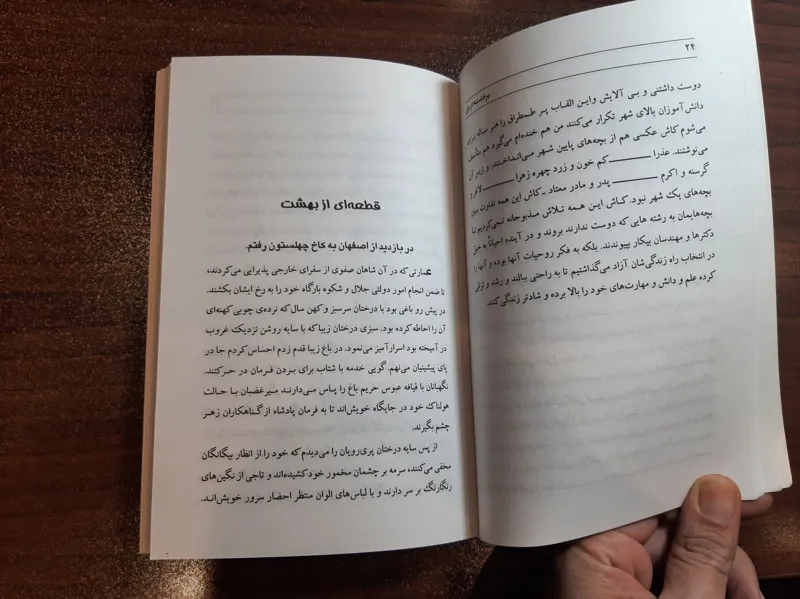 ۲۴
دوست داشتنی و بی آلایش واین القاب پر طمطراق را هر ساله برای
دانش‌آموزان بالای شهر تکرار می‌کنند من هم خنده‌ام می‌گیرد هم متأسف
می‌شوم کاش عکسی هم از بچه‌های پایین شهر می‌انداختند، و زیر آن
می‌نوشتند. عذرا ــــــــ کم خون و زرد چهره زهرا ــــــــ لاغر و
گرسنه و اکرم ــــــــ پدر و مادر معتاد ـ کاش این همه تفاوت میان
بچه‌های یک شهر نبود. کاش این همه تلاش مذبوحانه نمی‌کردیم تا
بچه‌هایمان به رشته هایی که دوست ندارند بروند و در آینده احیاناً به خیل
دکترها و مهندسان بیکار بپیوندند. بلکه به فکر روحیات آنها بوده و آنها را
در انتخاب راه زندگی‌شان آزاد می‌گذاشتیم تا به راحتی ببالند و رشد و ترقی
کرده علم و دانش و مهارت‌های خود را بالا برده و شادتر زندگی کنند.
قطعه‌ای از بهشت
در بازدید از اصفهان به کاخ چهلستون رفتم.
عمارتی که در آن شاهان صفوی از سفرای خارجی پذیرایی می‌کردند،
تا ضمن انجام امور دولتی جلال و شکوه بارگاه خود را به رخ ایشان بکشند.
در پیش رو باغی بود با درختان سرسبز و کهن سال که نرده‌ی چوبی کهنه‌ای
آن را احاطه کرده بود. سبزی درختان زیبا که با سایه روشن نزدیک غروب
در آمیخته بود اسرارآمیز می‌نمود. در باغ زیبا قدم زدم احساس کردم جا در
پای پیشینیان می‌نهم. گویی خدمه با شتاب برای بردن فرمان در حرکتند.
نگهبانان با قیافه عبوس حریم باغ را پاس می‌دارند میرغضبان با حالت
هولناک خود در جایگاه خویش‌اند تا به فرمان پادشاه از گناهکاران زهر
چشم بگیرند.
از پس سایه درختان پری‌رویان را می‌دیدم که خود را از انظار بیگانگان
مخفی می‌کنند، سرمه بر چشمان مخمور خود کشیده‌اند و تاجی از نگین‌های
رنگارنگ بر سر دارند و با لباس‌های الوان منتظر احضار سرور خویش‌اند.